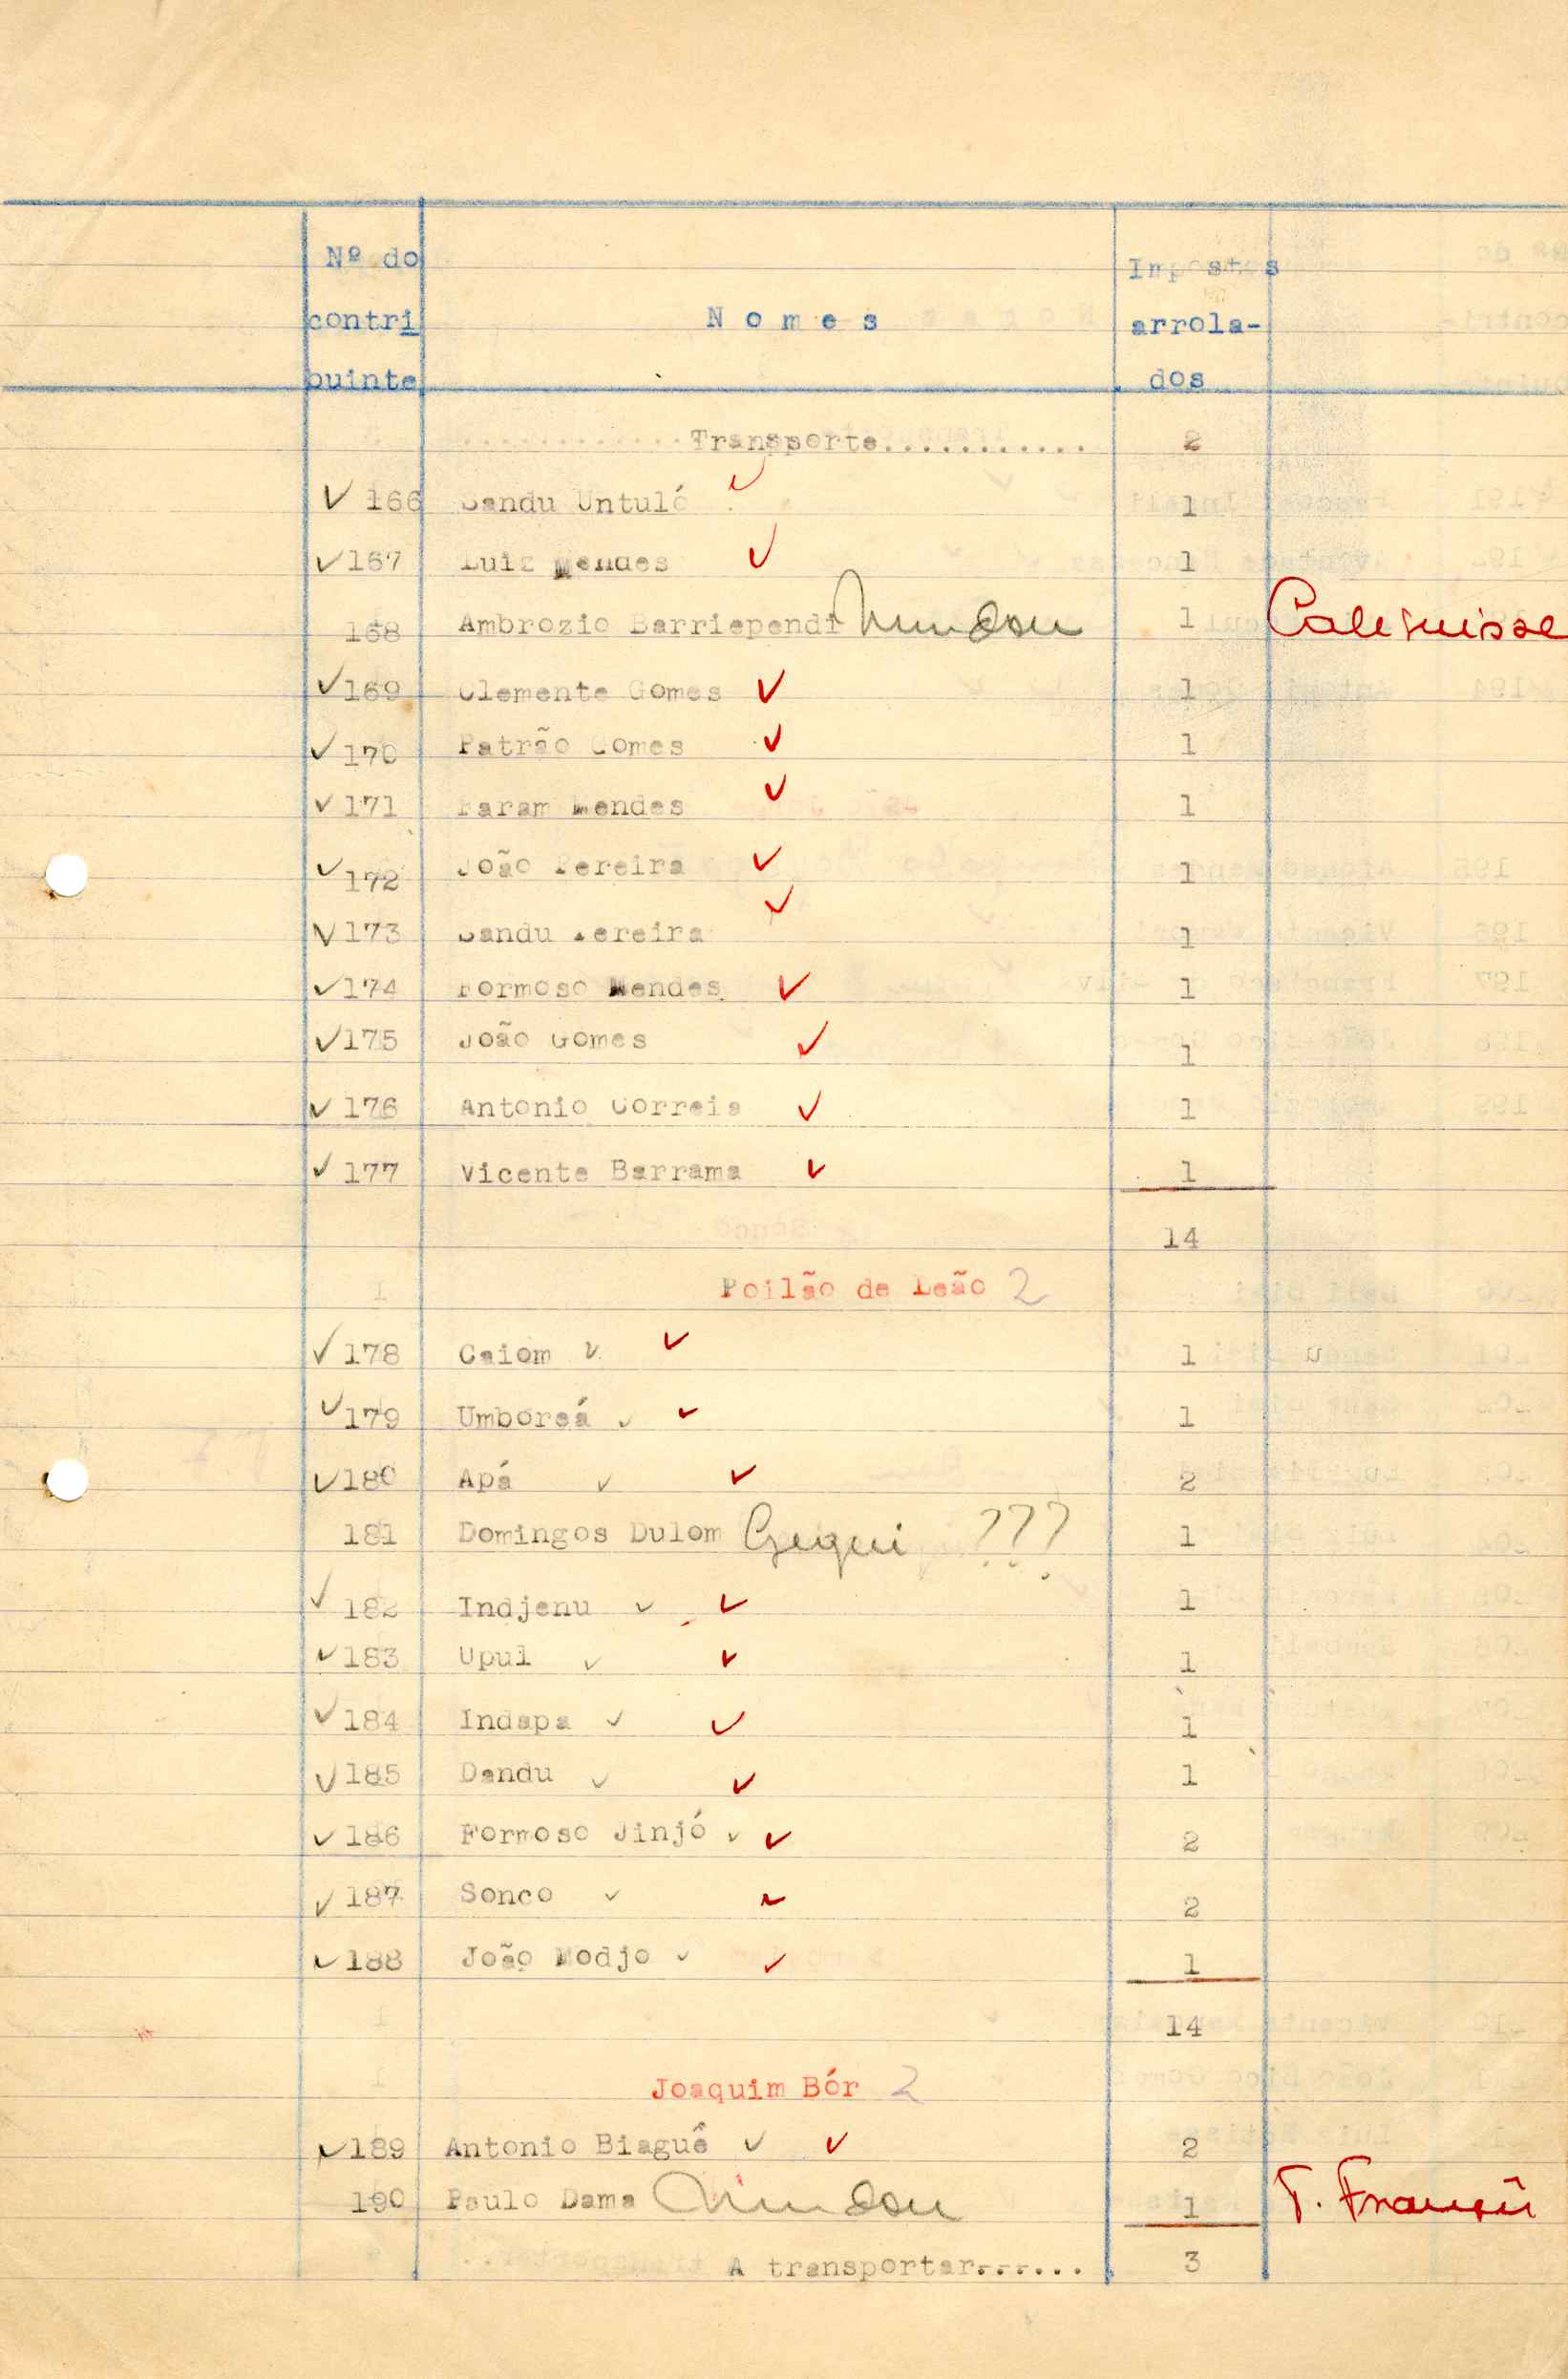 Nº do
contri
buinte
N o m e s
Impostos
arrola-
dos
............Transporte........... 2
✓ 166 Sandu Untuló ✓ 1
✓ 167 Luiz Mendes ✓ 1
168 Ambrozio Barriependi Mundou 1
✓ 169 Clemente Gomes ✓ 1
✓ 170 Patrão Gomes ✓ 1
✓ 171 Mendes ✓ 1
✓ 172 João Pereira ✓ 1
✓ 173 Sandu Pereira ✓ 1
✓ 174 Formoso Mendes ✓ 1
✓ 175 João Gomes ✓ 1
✓ 176 Antonio Correia ✓ 1
✓ 177 Vicente Barrama ✓ 1
14
Poilão de Leão 2
✓ 178 Caiom ✓ ✓ 1
✓ 179 Umboreá ✓ ✓ 1
✓ 180 Apá ✓ ✓ 2
181 Domingos Dulom ??? 1
✓ 182 Indjenu ✓ ✓ 1
✓ 183 Upul ✓ ✓ 1
✓ 184 Indapa ✓ ✓ 1
✓ 185 Dandu ✓ ✓ 1
✓ 186 Formoso Jinjó ✓ ✓ 2
✓ 187 Sonco ✓ ✓ 2
✓ 188 João Modjo ✓ ✓ 1
14
Joaquim Bór 2
✓ 189 Antonio Biaguê ✓ ✓ 2
190 Paulo Dama Mundou 1 T.
A transportar...... 3